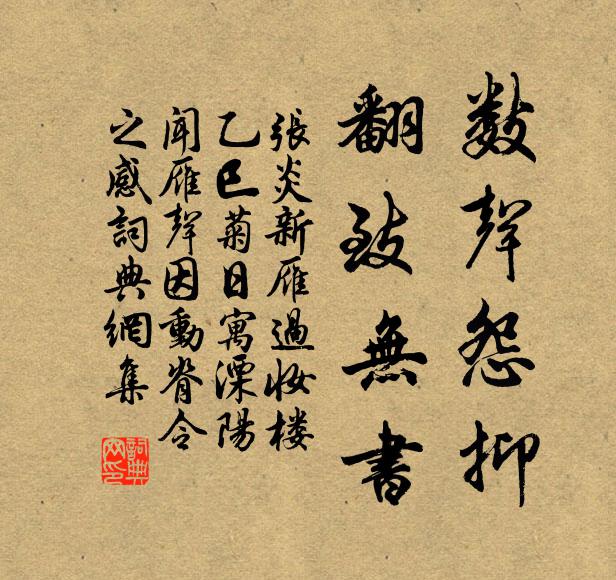 数聲怨抑
翻致無書
張炎新雁過妝楼
乙巳菊日寓溧陽
聞雁聲因動脊令
之感詞典網集
詞典網印